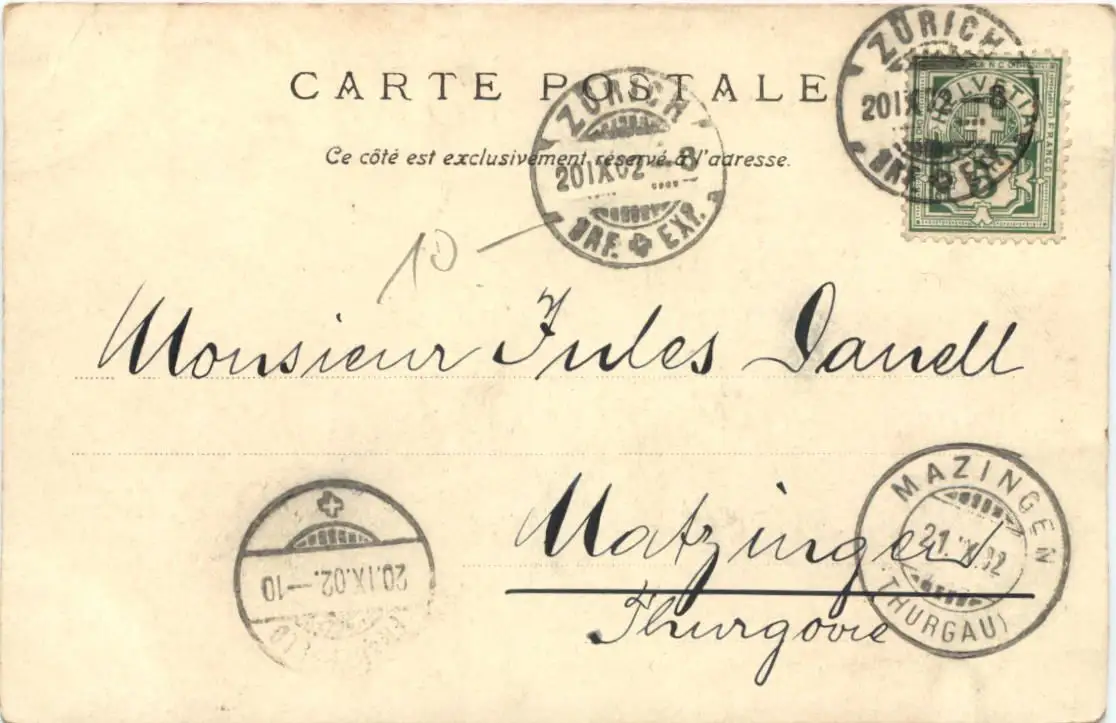 CARTE POSTALE
Ce côté est exclusivement réservé à l'adresse.
ZÜRICH
20 IX 02 - 8
BRF. EXP.
ZÜRICH
20 IX 02 - 8
BRF. EXP.
HELVETIA
FRANCO
5
10
Monsieur Jules Danell
Matzingen
Thurgovie
MAZINGEN
21. IX. 02
(THURGAU)
20.IX.02.-10